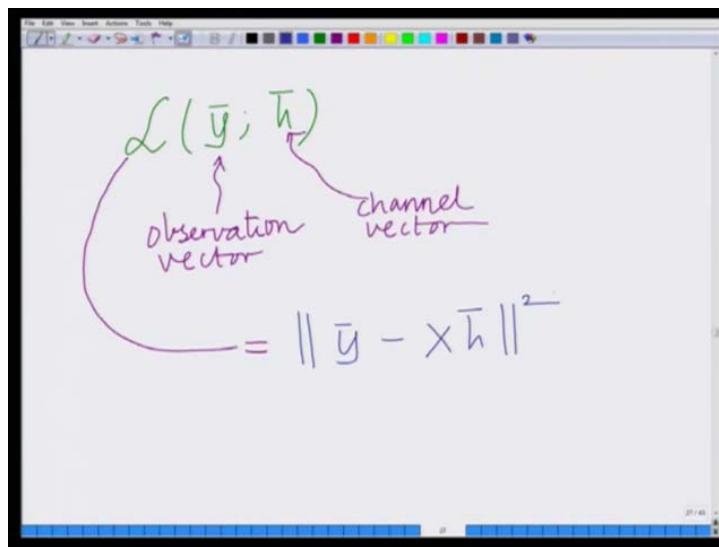 File Edit View Insert Actions Tools Help
ℒ(ȳ; h̄)
observation vector
channel vector
= || ȳ − X h̄ ||²
27 / 43